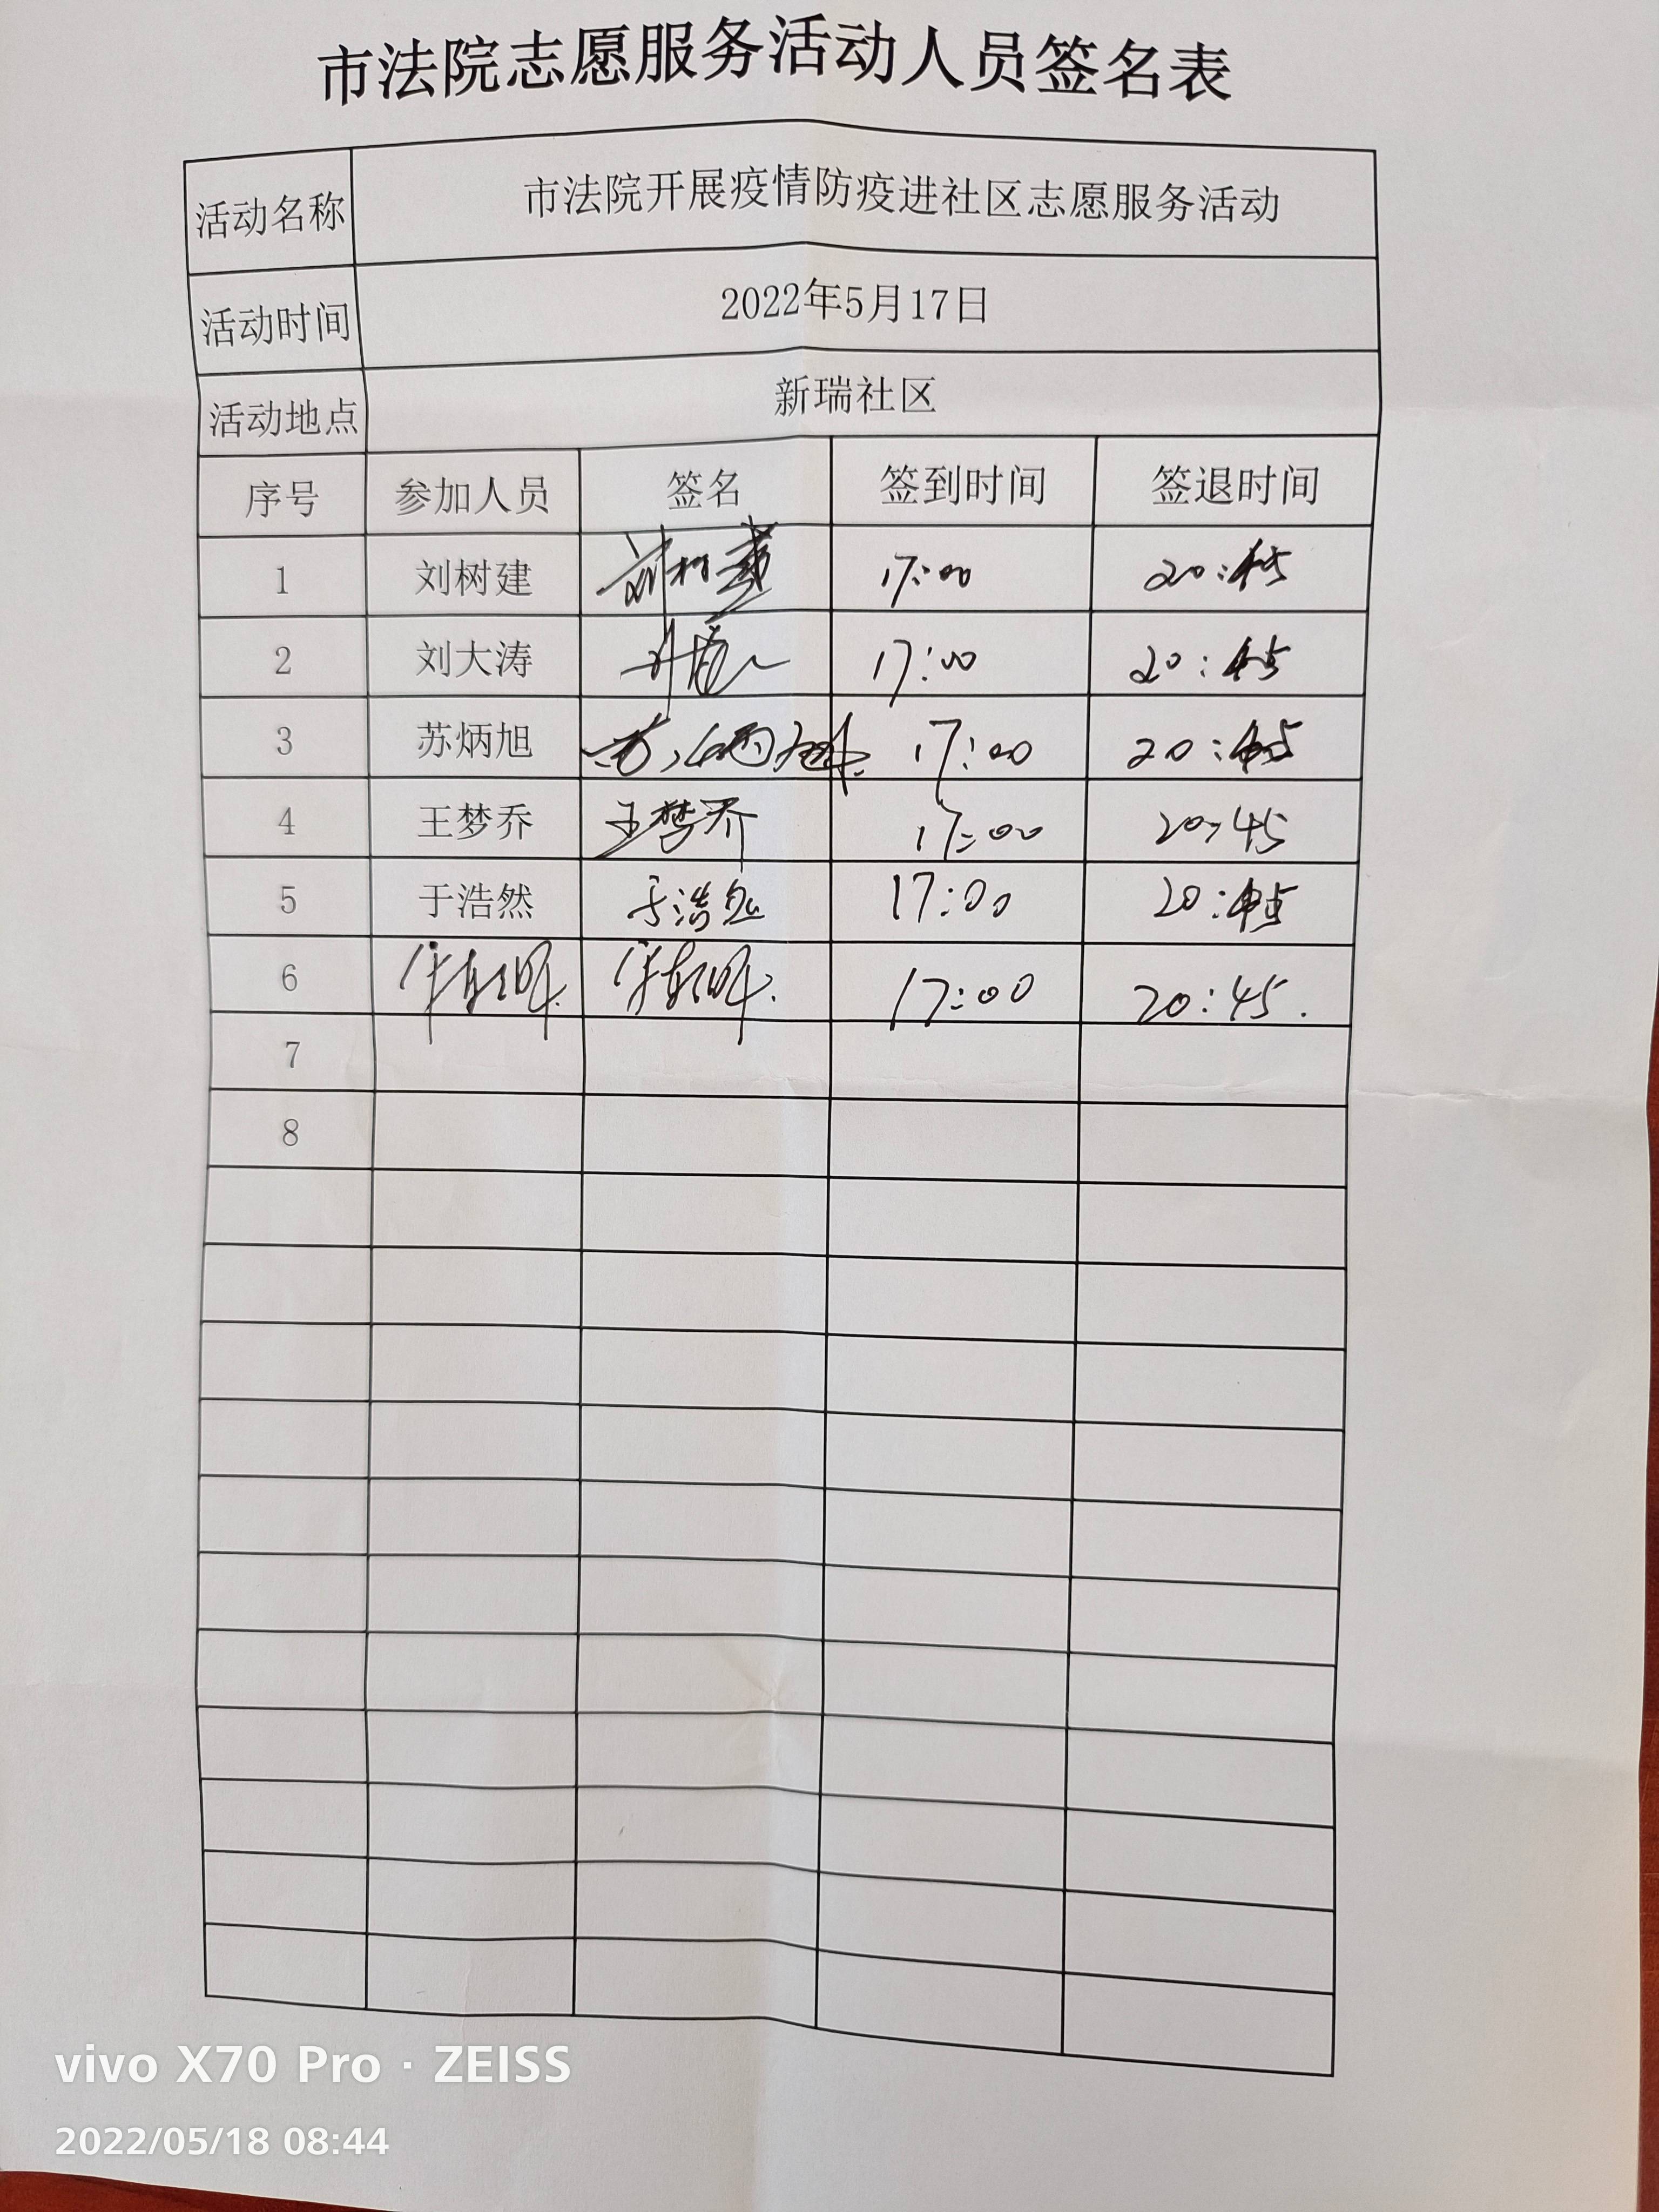 市法院志愿服务活动人员签名表
活动名称 市法院开展疫情防疫进社区志愿服务活动
活动时间 2022年5月17日
活动地点 新瑞社区
序号 参加人员 签名 签到时间 签退时间
1 刘树建 刘树建 17:00 20:45
2 刘大涛 17:00 20:45
3 苏炳旭 苏炳旭 17:00 20:45
4 王梦乔 王梦乔 17:00 20:45
5 于浩然 于浩然 17:00 20:45
6 17:00 20:45.
7
8
vivo X70 Pro · ZEISS
2022/05/18 08:44